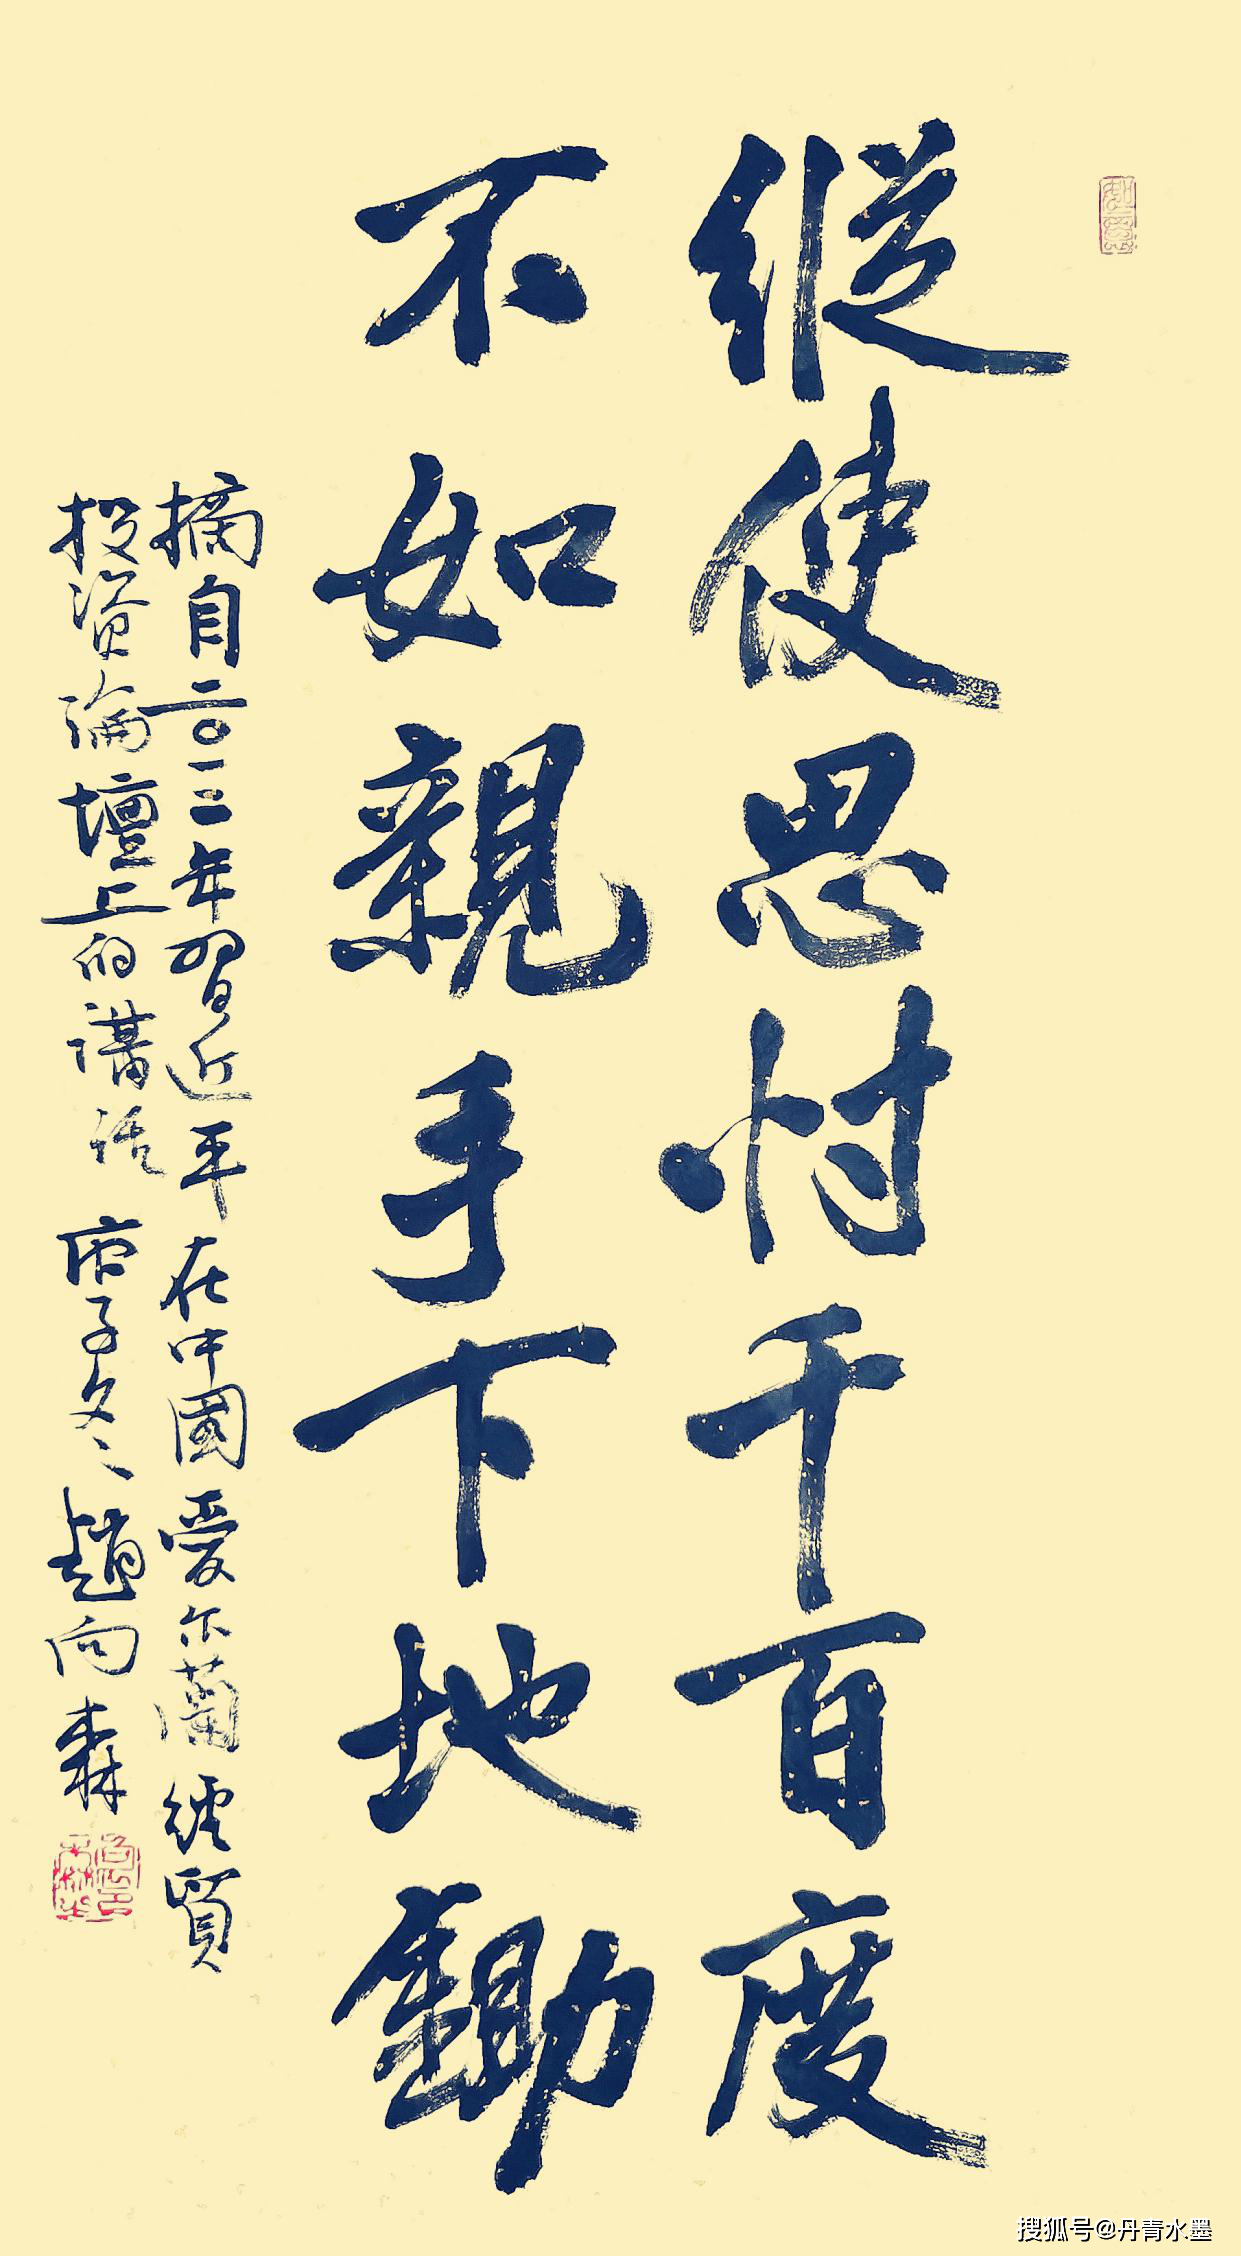 縱使思忖千百度
不如親手下地鋤
摘自二〇一二年習近平在中國愛尔蘭經貿
投资論壇上的講话 庚子冬 趙向森
搜狐号@丹青水墨